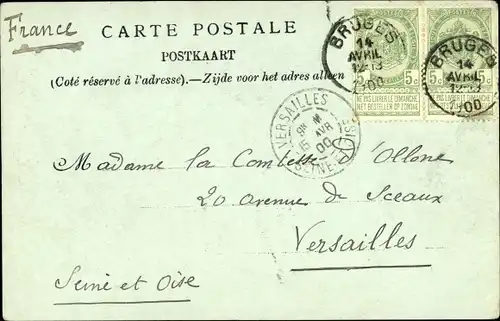 France
CARTE POSTALE
POSTKAART
(Coté réservé à l'adresse).—Zijde voor het adres alleen
BRUGES
14
AVRIL
1900
BRUGES
14
AVRIL
1900
5c 5c
NE PAS LIVRER LE DIMANCHE
NIET BESTELLEN OP ZONDAG
NE PAS LIVRER LE DIMANCHE
NIET BESTELLEN OP ZONDAG
VERSAILLES
15 AVR
00
SEINE-ET-OISE
Madame la Comtesse d'Ollone
20 avenue de Sceaux
Versailles
Seine et Oise